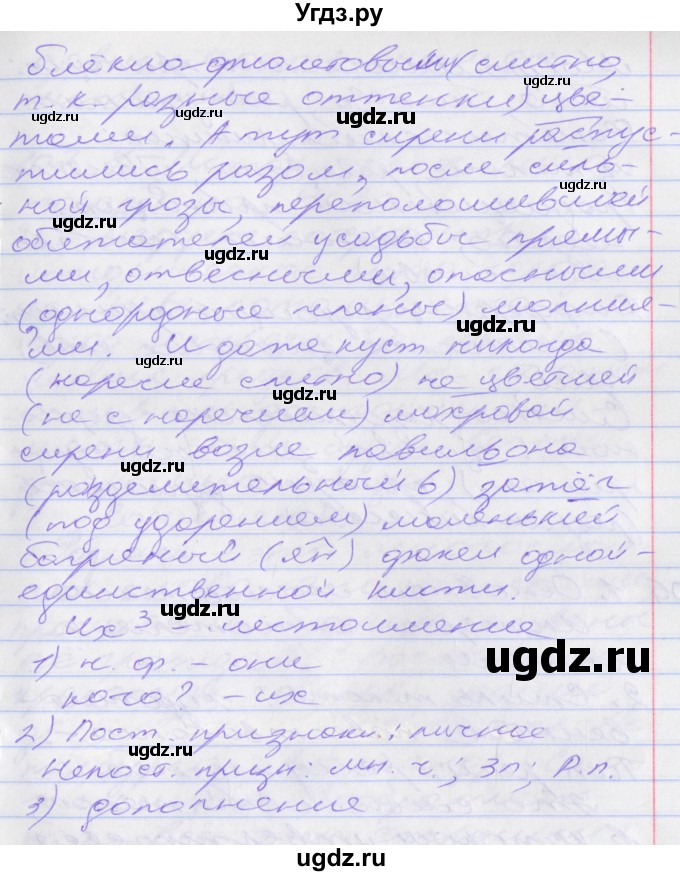 Угдз.ру
блёкло-фиолетовыми (слитно,
т. к. разные оттенки) цве-
тами. А тут сирени распус-
тились разом, после силь-
ной грозы, переполошившей
обитателей усадьбы прямы-
ми, отвесными, опасными
(однородные члены) молния-
ми. И даже куст никогда
(наречие слитно) не цветшей
(не с наречием) махровой
сирени возле павильона
(разделительный ь) зажёг
(под ударением) маленький
багряный (ян) факел одной-
единственной кисти.
Их³ – местоимение
1) н. ф. – они
кого? – их
2) Пост. признаки: личное
Непост. призн: мн. ч.; 3л; Р.п.
3) дополнение
ugdz.ru